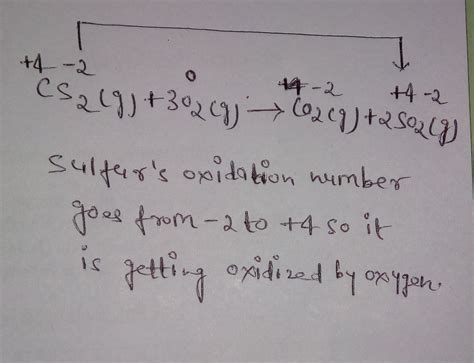 +4 -2 0 +4 -2 +4 -2
CS2(g) + 3O2(g) → CO2(g) + 2SO2(g)
Sulfur's oxidation number
goes from -2 to +4 so it
is getting oxidized by oxygen.